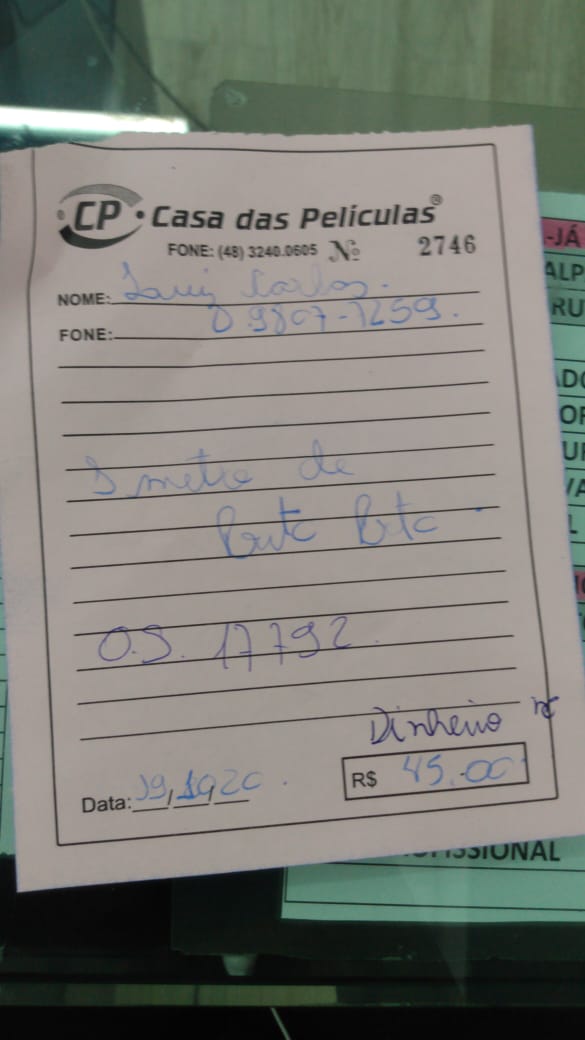 CP • Casa das Películas®
FONE: (48) 3240.0605 Nº 2746
NOME: Luiz Carlos.
FONE: 9807-7259.
metro de
Preto
O.S. 17792.
Dinheiro
Data: 19, 20.
R$ 45,00
-JÁ
ALP
RU
OFISSIONAL